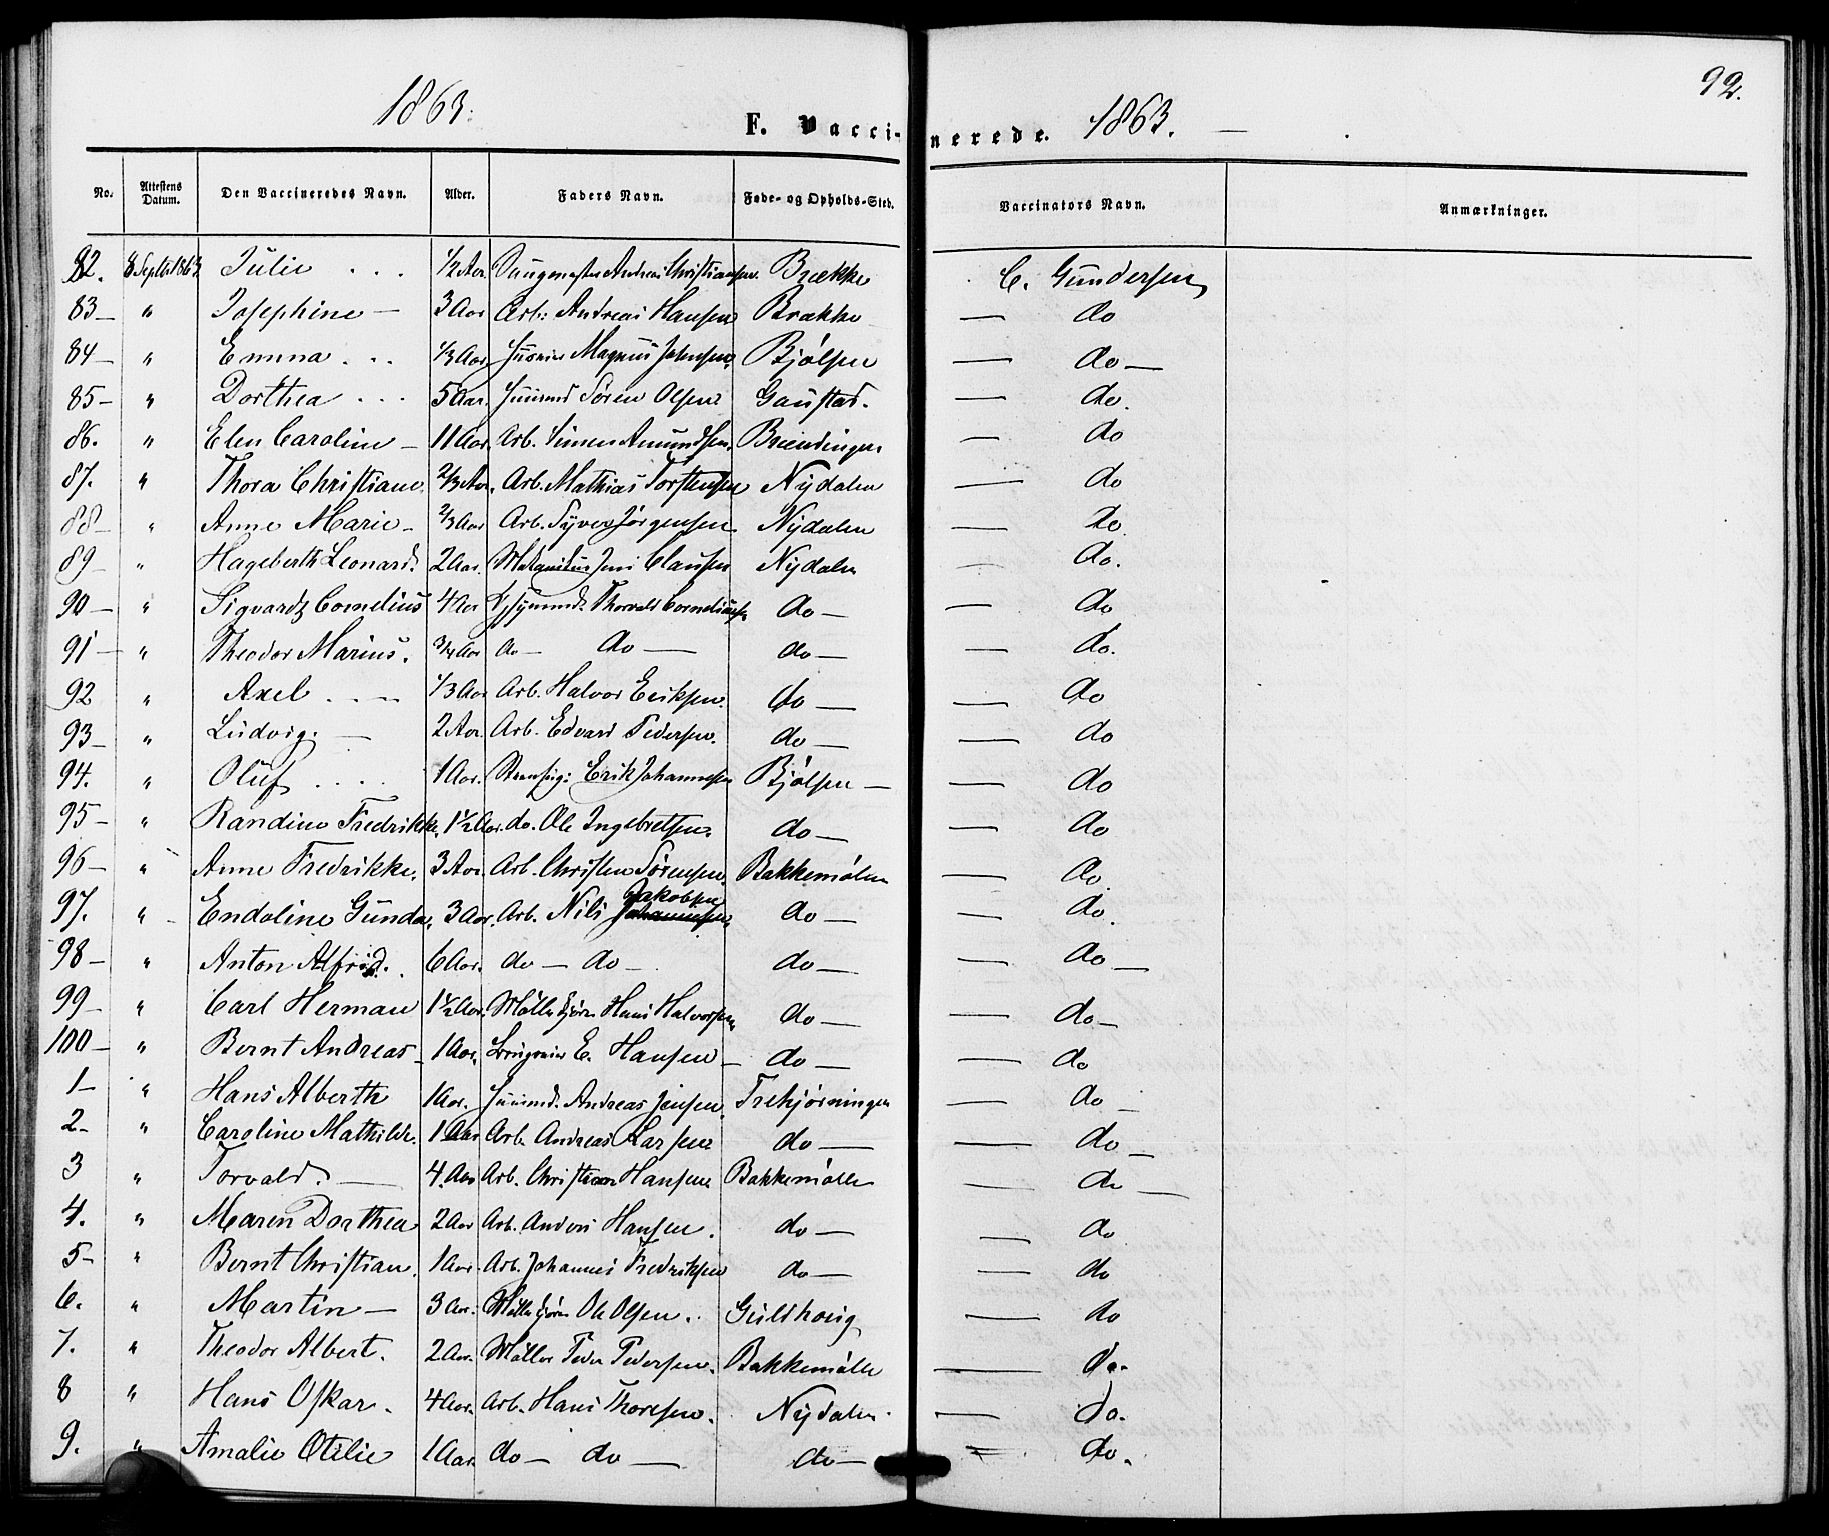 92.
1863. F. Vaccinerede. 1863.
No. Attestens Datum. Den Vaccineredes Navn. Alder. Faders Navn. Føde- og Opholds-Sted. Vaccinators Navn. Anmærkninger.
82. 8 Septbr 1863 Julie . . . 1/2 Aar Andreas Christiansen. Brække C. Gundersen
83 — " Josephine — 3 Aar Arb: Andreas Hansen Brække — do
84 — " Emma . . . 1/3 Aar. Magnus Johnsen. Bjølsen — do —
85 — " Dorthea . . . 5 Aar. Huusmd Søren Olsen Gaustad. — do.
86. " Elen Caroline — 11 Aar. Arb. Simen Amundsen. — do
87. " Thora Christiane. 2/3 Aar. Arb. Mathias Torstensen Nydalen — do
88 — " Anne Marie — 2/3 Aar Arb. Syver Jørgensen Nydalen — do
89 — " Hageberth Leonard. 2 Aar. Jens Clausen Nydalen — do.
90 — " Sigvardt Cornelius 4 Aar Thorvald Corneliusen do — — do
91 — " Theodor Marius. 3/4 Aar do — do — do — — do.
92 " Axel . . — 1/3 Aar Arb. Halvor Eriksen. do — — do
93 — " Ludvig. — 2 Aar. Arb. Edvard Pedersen. do — — do
94. " Oluf . . . . 1 Aar. Erik Johannesen Bjølsen — — do
95 — " Randine Fredrikke. 1 1/2 Aar. do. Ole Ingebretsen. do — — do
96 — " Anne Fredrikke. 3 Aar. Arb. Christen Sørensen. Bakkemølen — do.
97. " Endoline Gunda. 3 Aar. Arb. Nils Jakobsen do — — do.
98 — " Anton Alfrid. 6 Aar. do — do — do — — do —
99 — " Carl Herman 1 1/2 Aar. Hans Halvorsen do — — do —
100 — " Bernt Andreas — 1 Aar. E. Hansen — do — — do
1 — " Hans Alberth 1 Aar. Huusmd. Andreas Jensen. Trekjørningen — do —
2 — " Caroline Mathilde. 1 Aar Arb. Andreas Larsen do — — do —
3 " Torvald. — 4. Aar Arb. Christian Hansen Bakkemølle — do —
4. " Maren Dorthea 2 Aar Arb. Anders Hansen. do — — do
5 — " Bernt Christian. 1 Aar. Arb. Johannes Fredriksen do — — do
6. " Martin — 3 Aar. Ole Olsen. Guldhoug — do
7. " Theodor Albert. 2 Aar. Møller Peder Pedersen. Bakkemølle — do.
8 " Hans Oskar. 4 Aar. Arb. Hans Thoresen. Nydalen. — do.
9. " Amalie Otilie 1 Aar. do — do — do — — do.